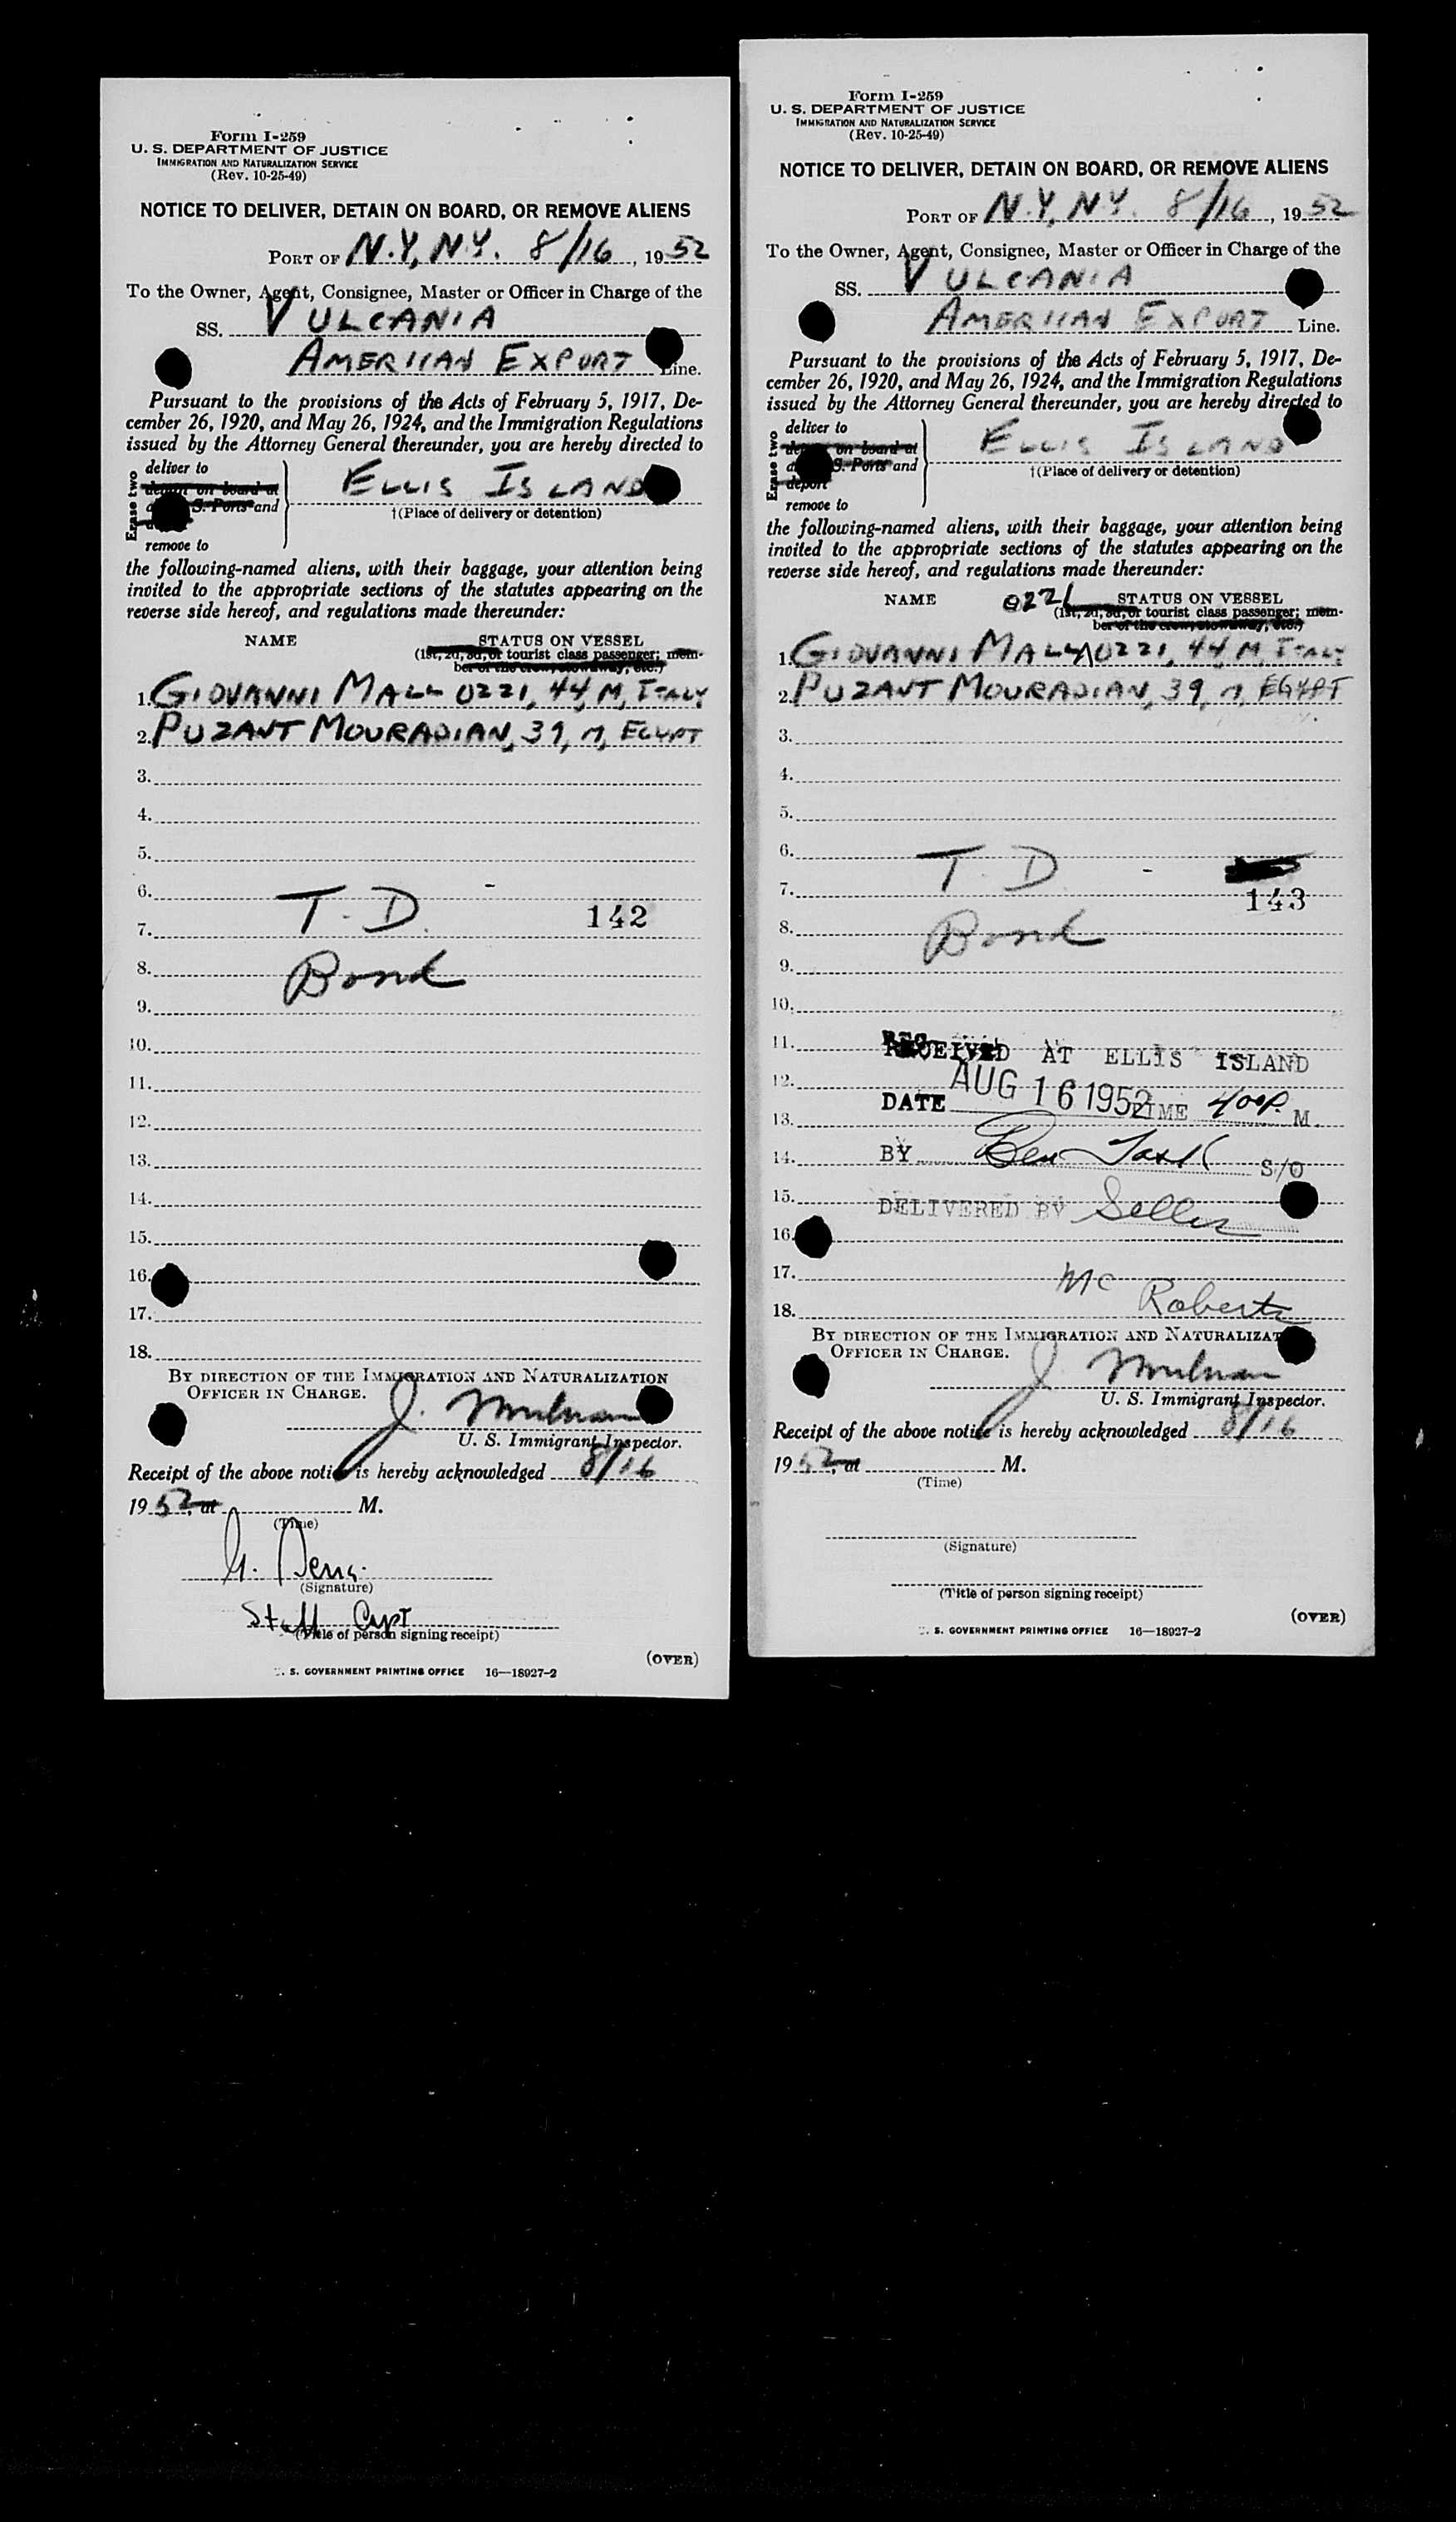 Form I-259
U. S. DEPARTMENT OF JUSTICE
IMMIGRATION AND NATURALIZATION SERVICE
(Rev. 10-25-49)
NOTICE TO DELIVER, DETAIN ON BOARD, OR REMOVE ALIENS
PORT OF N.Y, N.Y. 8/16, 1952
To the Owner, Agent, Consignee, Master or Officer in Charge of the
SS. VULCANIA
AMERICAN EXPORT Line.
Pursuant to the provisions of the Acts of February 5, 1917, De-
cember 26, 1920, and May 26, 1924, and the Immigration Regulations
issued by the Attorney General thereunder, you are hereby directed to
Erase two
deliver to
detain on board at
S. Ports and
remove to
ELLIS ISLAND
†(Place of delivery or detention)
the following-named aliens, with their baggage, your attention being
invited to the appropriate sections of the statutes appearing on the
reverse side hereof, and regulations made thereunder:
NAME STATUS ON VESSEL
(1st, 2d, 3d, or tourist class passenger; mem-
ber of the crew, stowaway, etc.)
1. GIOVANNI MALLOZZI, 44, M, ITALY
2. PUZANT MOURADIAN, 39, M, EGYPT
3.
4.
5.
6.
7. T. D. 142
8. Bond
9.
10.
11.
12.
13.
14.
15.
16.
17.
18.
BY DIRECTION OF THE IMMIGRATION AND NATURALIZATION
OFFICER IN CHARGE.
J.
U. S. Immigrant Inspector.
Receipt of the above notice is hereby acknowledged 8/16
1952, at M.
(Time)
G.
(Signature)
Staff Capt
(Title of person signing receipt)
(OVER)
U. S. GOVERNMENT PRINTING OFFICE 16—18927-2
Form I-259
U. S. DEPARTMENT OF JUSTICE
IMMIGRATION AND NATURALIZATION SERVICE
(Rev. 10-25-49)
NOTICE TO DELIVER, DETAIN ON BOARD, OR REMOVE ALIENS
PORT OF N.Y, N.Y. 8/16, 1952
To the Owner, Agent, Consignee, Master or Officer in Charge of the
SS. VULCANIA
AMERICAN EXPORT Line.
Pursuant to the provisions of the Acts of February 5, 1917, De-
cember 26, 1920, and May 26, 1924, and the Immigration Regulations
issued by the Attorney General thereunder, you are hereby directed to
Erase two
deliver to
on board at
S. Ports and
deport
remove to
ELLIS ISLAND
†(Place of delivery or detention)
the following-named aliens, with their baggage, your attention being
invited to the appropriate sections of the statutes appearing on the
reverse side hereof, and regulations made thereunder:
NAME 0221 STATUS ON VESSEL
(1st, 2d, 3d, or tourist class passenger; mem-
ber of the crew, stowaway, etc.)
1. GIOVANNI MALLOZZI, 44, M, ITALY
2. PUZANT MOURADIAN, 39, M, EGYPT
3.
4.
5.
6.
7. T. D. 143
8. Bond
9.
10.
11. RECEIVED AT ELLIS ISLAND
12. AUG 16 1952
13. DATE TIME 400 P. M.
14. BY Ben S/O
15. DELIVERED BY
16.
17. Mc
18. Roberts
BY DIRECTION OF THE IMMIGRATION AND NATURALIZAT
OFFICER IN CHARGE.
J.
U. S. Immigrant Inspector.
Receipt of the above notice is hereby acknowledged 8/16
1952, at M.
(Time)
(Signature)
(Title of person signing receipt)
(OVER)
U. S. GOVERNMENT PRINTING OFFICE 16—18927-2